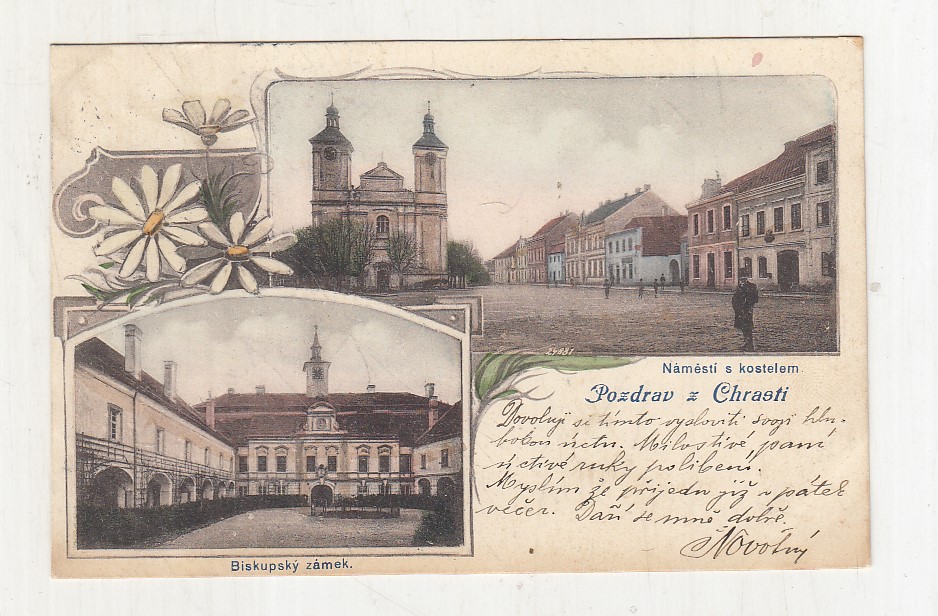 24681
Náměstí s kostelem.
Pozdrav z Chrasti
Dovoluji si tímto vysloviti svoji hlu-
bokou úctu. Milostivé paní
úctivé ruky políbení.
Myslím že přijedu již v pátek
večer. Daří se mně dobře.
Novotný
Biskupský zámek.